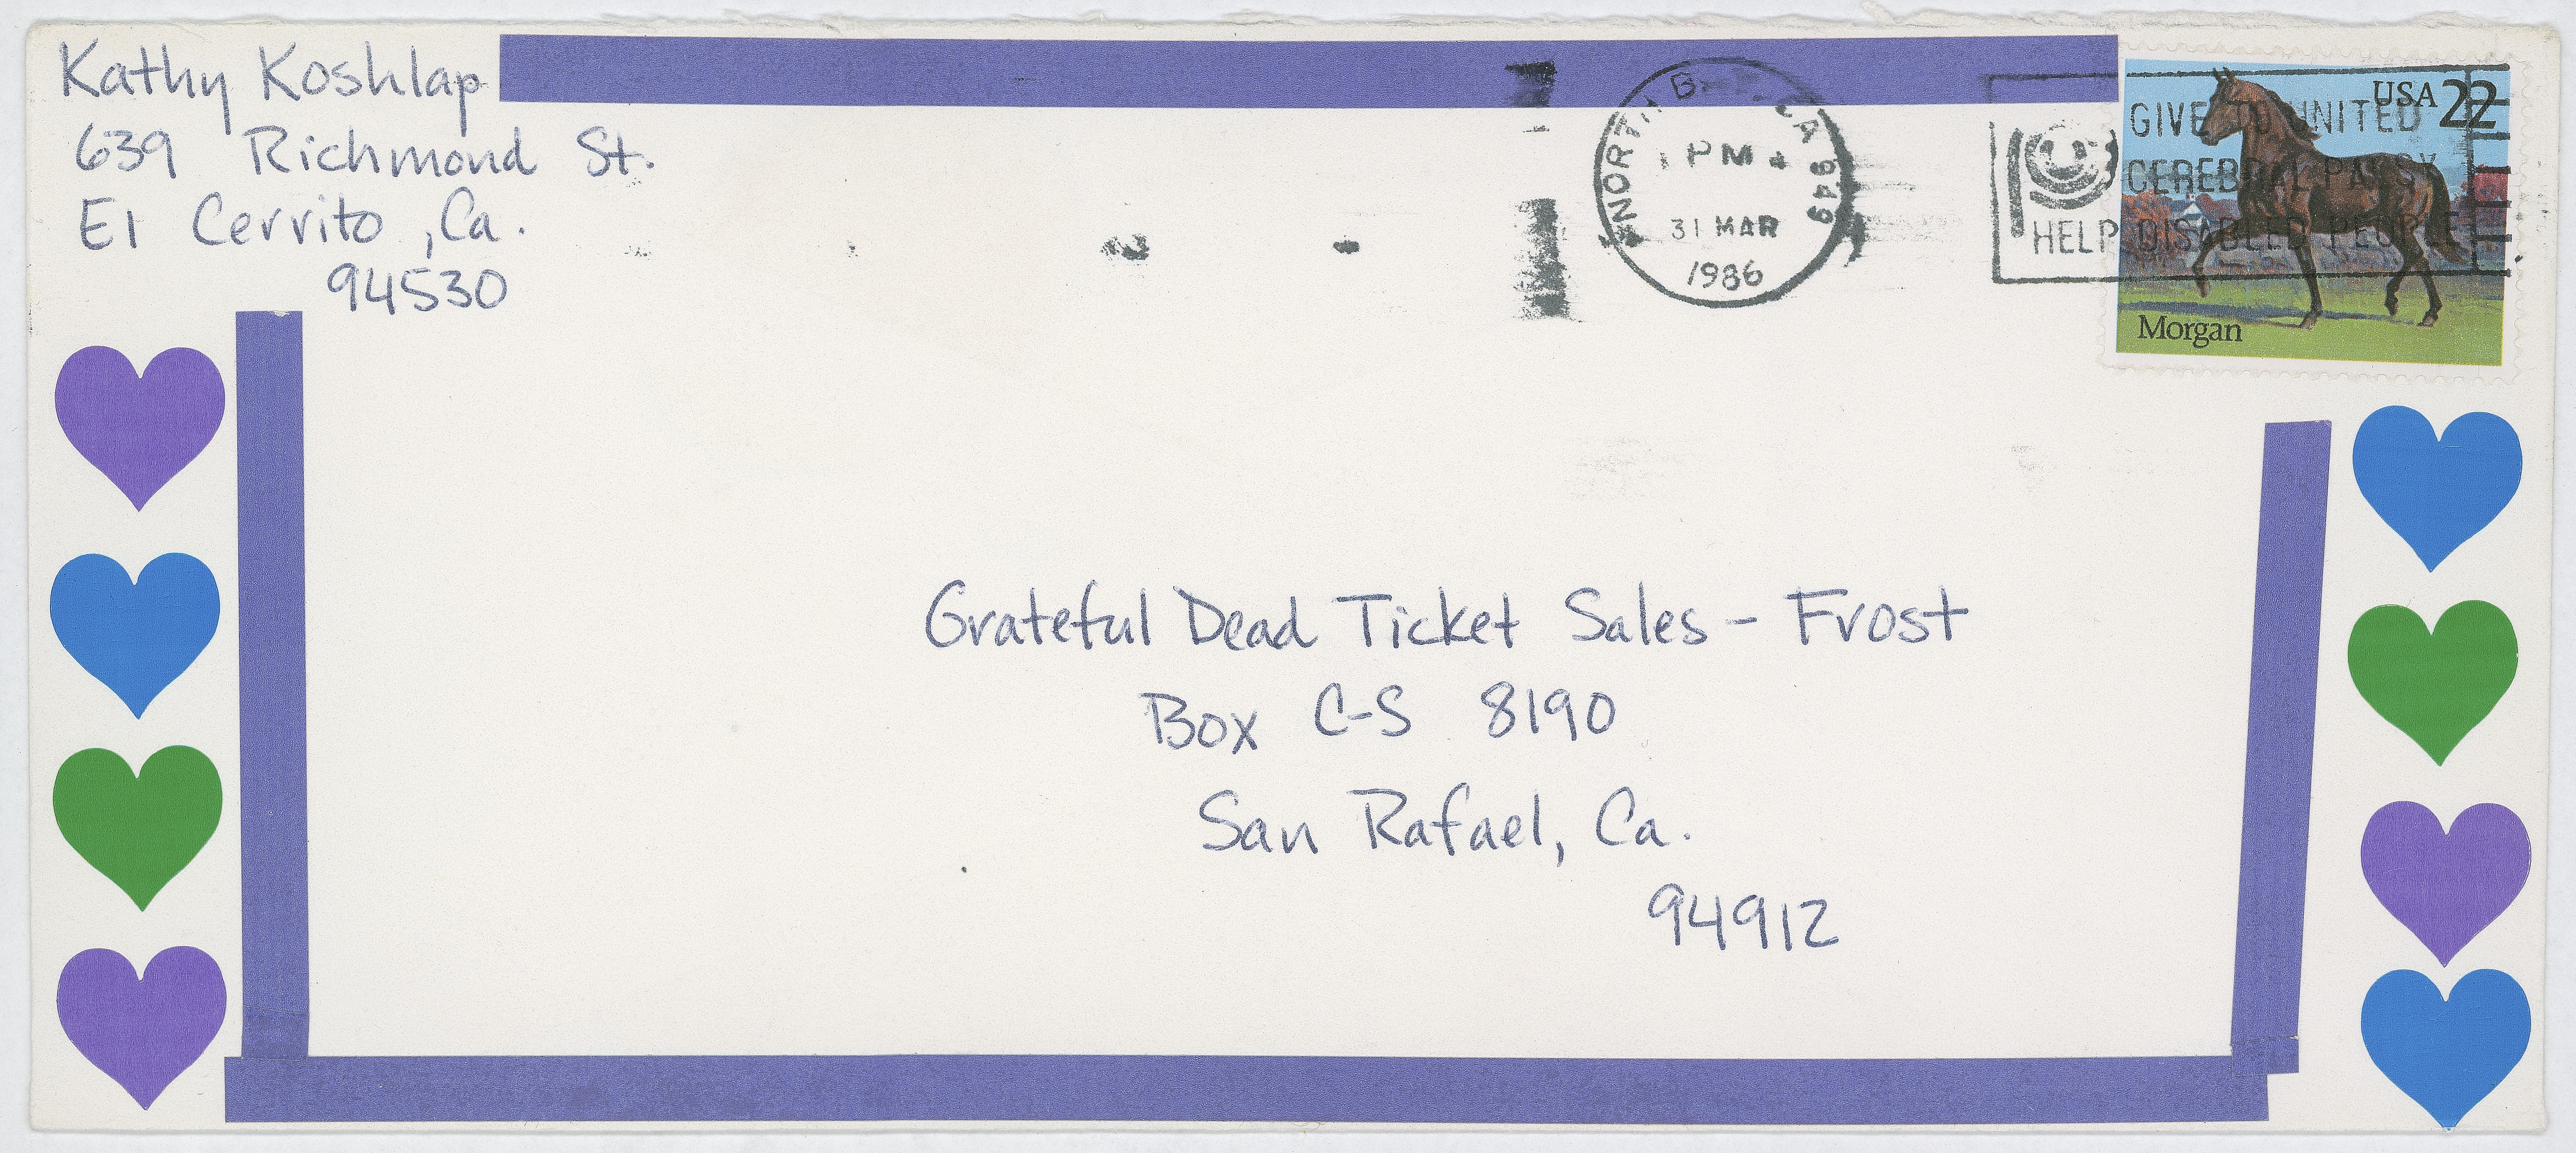 Kathy Koshlap
639 Richmond St.
El Cerrito, Ca.
94530
CA 949
PM
31 MAR
1986
GIVE TO UNITED
CEREBRAL PALSY
HELP DISABLED PEOPLE
USA 22
Morgan
Grateful Dead Ticket Sales - Frost
Box C-S 8190
San Rafael, Ca.
94912